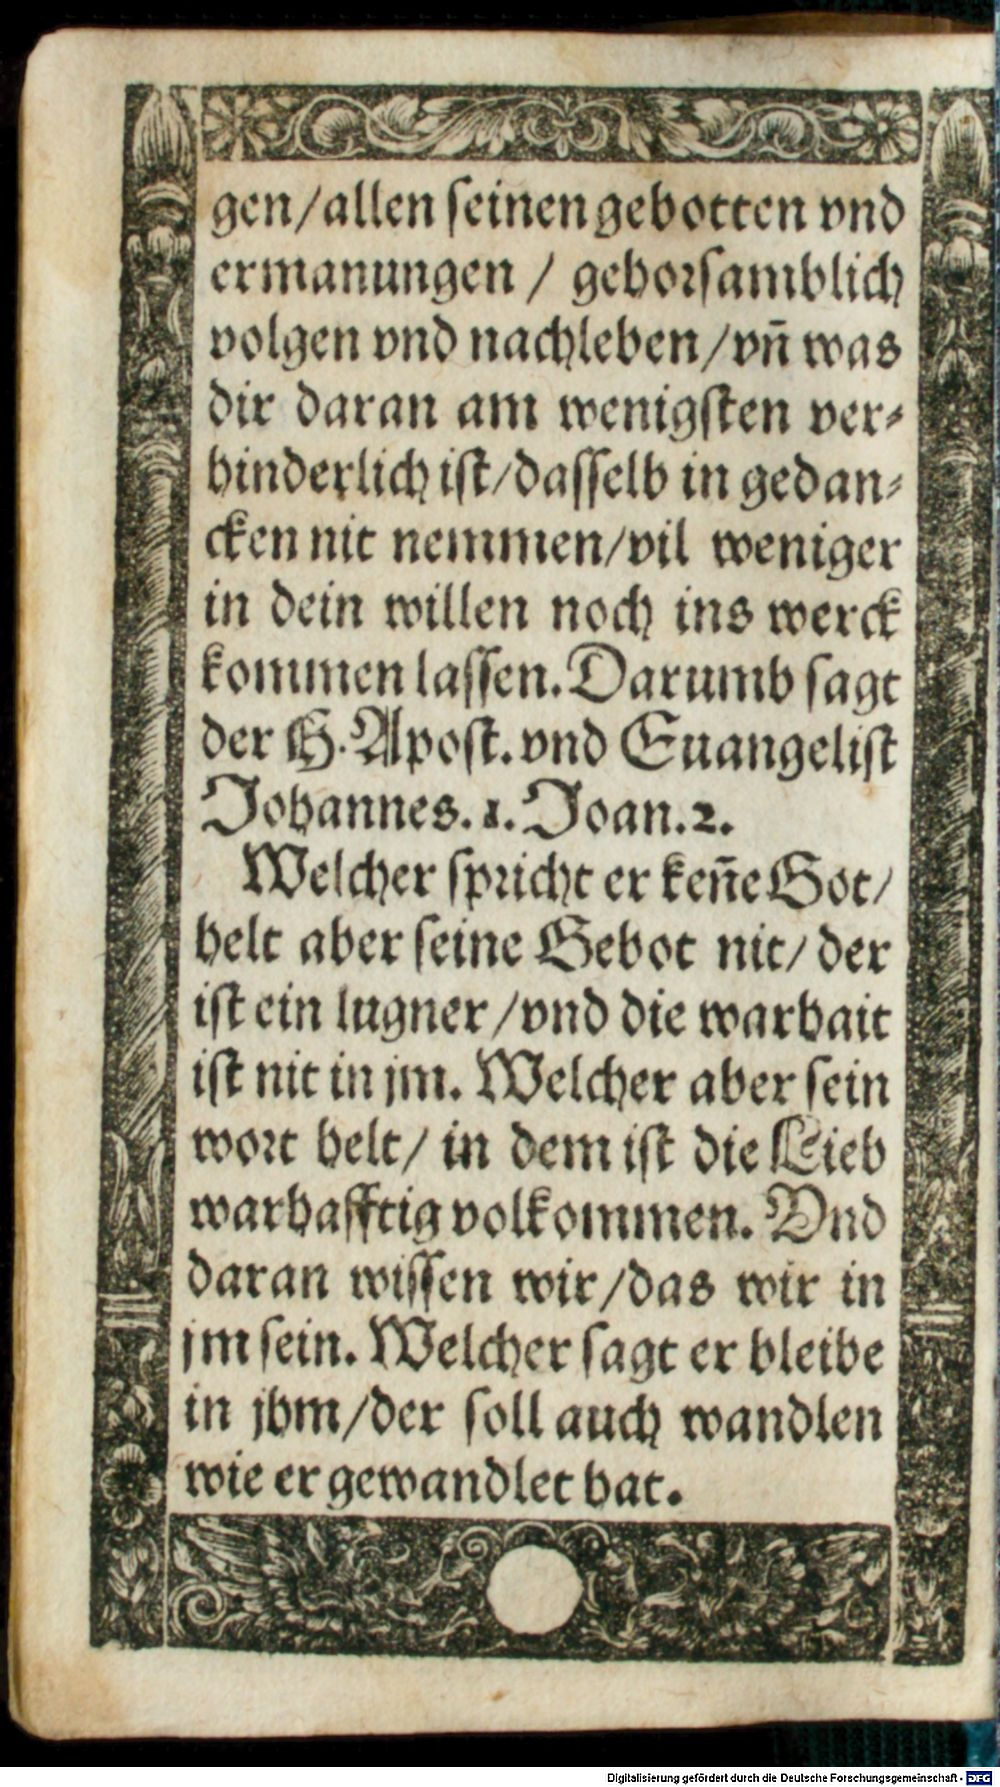 gen/allen ſeinen gebotten vnd
ermanungen / gehorſamblich
volgen vnd nachleben/vn̄ was
dir daran am wenigſten ver⸗
hinderlich iſt/daſſelb in gedan⸗
cken nit nemmen/vil weniger
in dein willen noch ins werck
kommen laſſen. Darumb ſagt
der H. Apoſt. vnd Euangeliſt
Johannes. 1. Joan. 2.
Welcher ſpricht er ken̄e Got/
helt aber ſeine Gebot nit/ der
iſt ein lugner /vnd die warhait
iſt nit in jm. Welcher aber ſein
wort helt/ in dem iſt die Lieb
warhafftig volkommen. Vnd
daran wiſſen wir/das wir in
jm ſein. Welcher ſagt er bleibe
in jhm/der ſoll auch wandlen
wie er gewandlet hat.
Digitalisierung gefördert durch die Deutsche Forschungsgemeinschaft - DFG